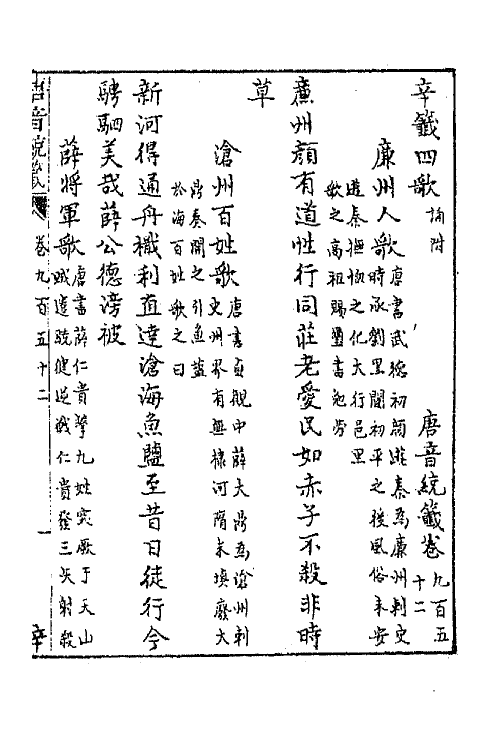 辛籤四歌補附　唐音統籤卷九百五十二
廉州人歌唐書武德初顏遊秦為廉州刺史
時承劉黑闥初平之後風俗未安
遊秦撫恤之化大行邑里
歌之高祖賜璽書勉勞
廉州顏有道性行同莊老愛民如赤子不殺非時
草
滄州百姓歌唐書貞觀中薛大鼎為滄州刺
史州界有無棣河隋末填廢大
鼎奏開之引魚鹽
於海百姓歌之曰
新河得通舟檝利直達滄海魚鹽至昔日徒行今
騁駟美哉薛公德滂被
薛將軍歌唐書薛仁貴擊九姓突厥于天山
賊遣驍健逆戰仁貴發三矢射殺
唐音統籤　卷九百五十二　一　辛